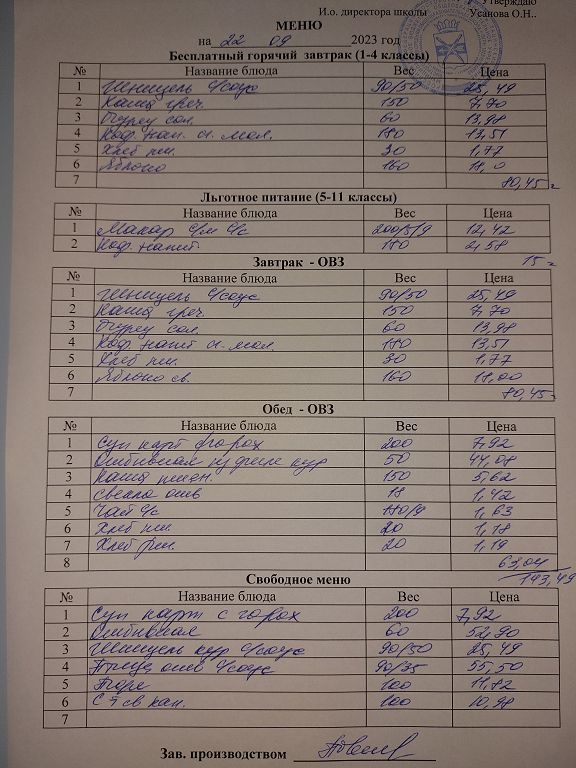 Утверждаю
И.о. директора школы Усанова О.Н..
МЕНЮ
на 22 09 2023 год
Бесплатный горячий завтрак (1-4 классы)
№ Название блюда Вес Цена
1 Шницель с/соус 90/50 25,49
2 Каша греч. 150 7,70
3 Огурец сол. 60 13,98
4 Коф. нап. с. мол. 180 13,51
5 Хлеб пш. 30 1,77
6 Яблоко 160 18,0
7 80,45
Льготное питание (5-11 классы)
№ Название блюда Вес Цена
1 Макар с/м с/с 200/5/9 12,42
2 Коф. напит. 180 2,58
15
Завтрак - ОВЗ
№ Название блюда Вес Цена
1 Шницель с/соус 90/50 25,49
2 Каша греч. 150 7,70
3 Огурец сол. 60 13,98
4 Коф. напит с. мол. 180 13,51
5 Хлеб пш. 30 1,77
6 Яблоко св. 160 18,00
7 80,45
Обед - ОВЗ
№ Название блюда Вес Цена
1 Суп карт с горох 200 7,92
2 Отбивная из филе кур 50 44,08
3 Каша пшен. 150 5,62
4 свекла отв 18 1,42
5 Чай с/с 180/9 1,63
6 Хлеб пш. 20 1,18
7 Хлеб рж. 20 1,19
8 63,04
143,49
Свободное меню
№ Название блюда Вес Цена
1 Суп карт с горох 200 7,92
2 Отбивная 60 52,90
3 Шницель кур с/соус 90/50 25,49
4 Птица отв с/соус 90/35 55,50
5 Пюре 100 11,82
6 св кап. 100 10,98
7
Зав. производством